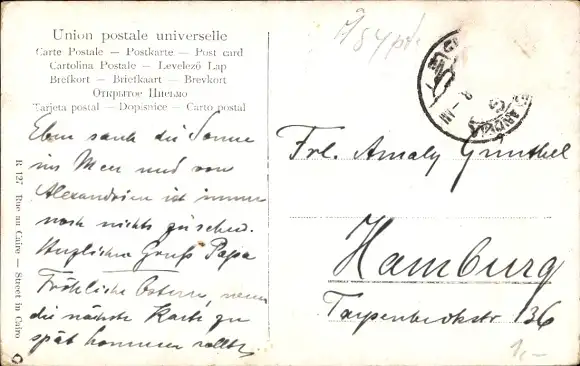 Union postale universelle
Carte Postale — Postkarte — Post card
Cartolina Postale — Levelező Lap
Brefkort — Briefkaart — Brevkort
Открытое Письмо
Tarjeta postal — Dopisnice — Carto postal
Eben sank die Sonne
ins Meer und von
Alexandrien ist immer
noch nichts zu sehen.
Herzlichen Gruß Papa
Fröhliche Ostern, wenn
die nächste Karte zu
spät kommen sollte
R 127 Rue au Caire — Street in Cairo
Frl. Amaly Grunthel
Hamburg
Tarpenbeckstr 136
1,-